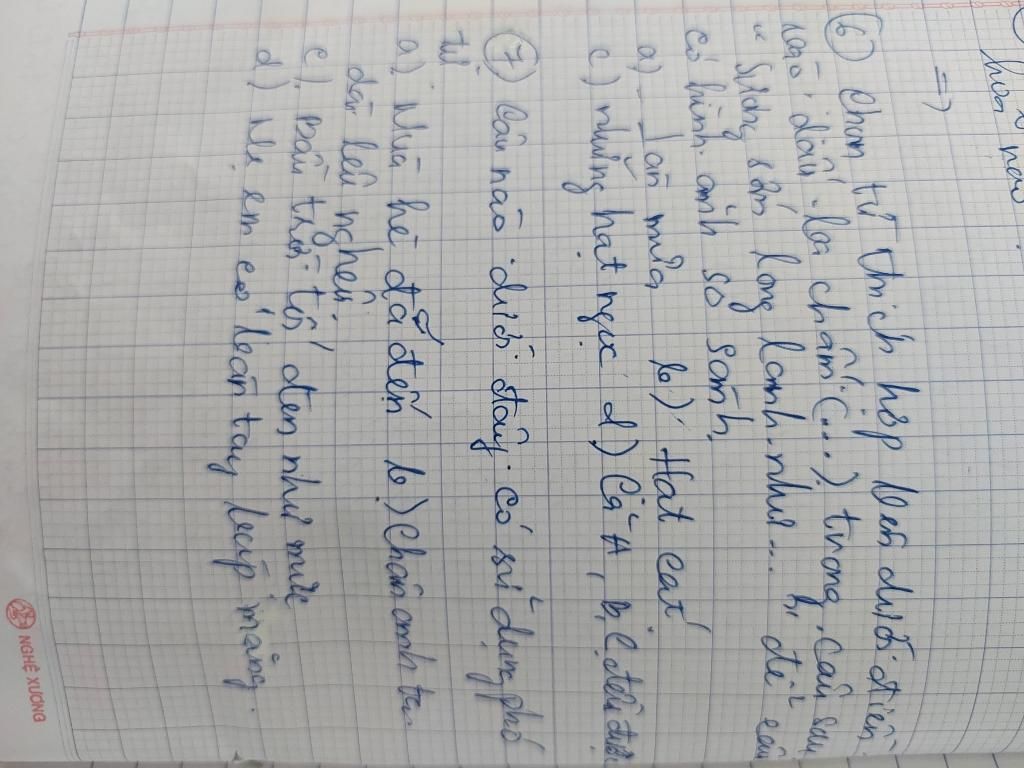 hoa x nở
=>
⑥ Chọn từ thích hợp bên dưới điền
vào dấu ba chấm (...) trong câu sau
" Sương sớm long lanh như ... " để câu
có hình ảnh so sánh.
a) làn mưa b) Hạt cát
c) những hạt ngọc d) Cả A, b, C đều đúng
⑦ Câu nào dưới đây có sử dụng phó
từ.
a) Mùa hè đã đến b) Chân anh ta
dài lêu nghêu
c) Bầu trời tối đen như mực
d) Mẹ em có đôi tay mảng.
NGHÊ XƯƠNG